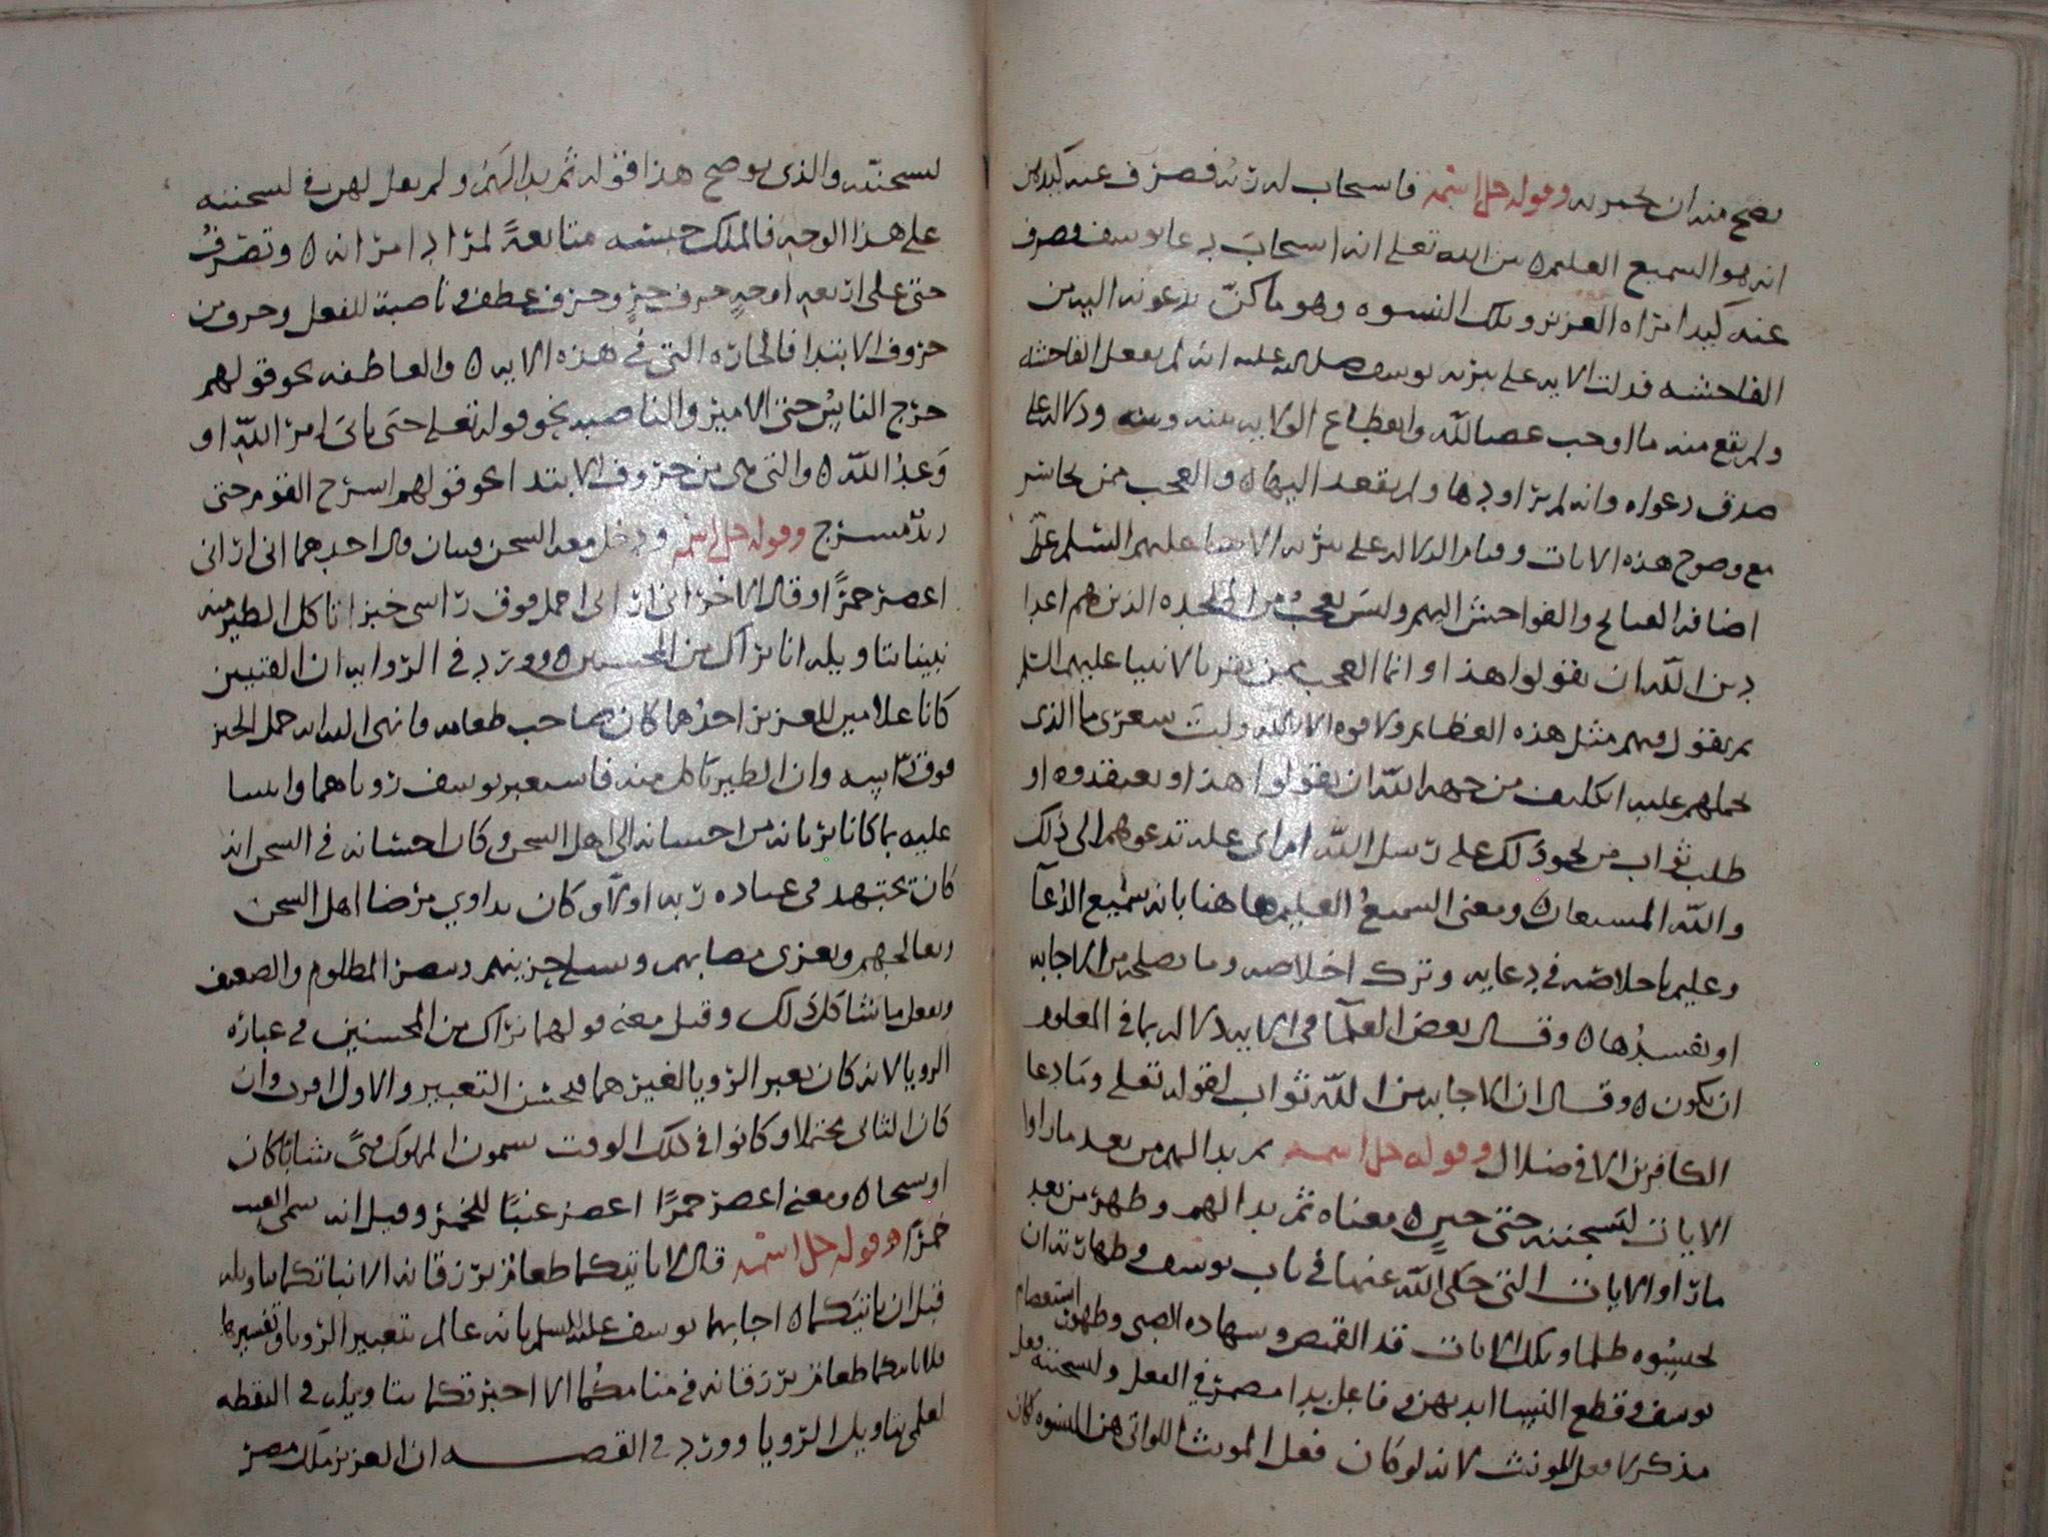 يصح منه ان يجبر به وقوله جل اسمه فاستجاب له ربه فصرف عنه كيدهن
انه هو السميع العليم ه بين الله تعلى انه استجاب دعا يوسف فصرف
عنه كيد امراه العزيز وتلك النسوه وهو ما كنّ يدعونه اليه من
الفاحشه فدلت الايه على تنزيه يوسف صلى الله عليه انه لم يفعل الفاحشه
ولم يقع منه ما اوجب غضب الله وانقطاع الولايه بينه وبينه ودلاله على
صدق دعواه وانه لم يراودها ولم يقصد اليها ه والعجب ممن تجاسر
مع وضوح هذه الايات وقيام الدلاله على تنزيه الانبيا عليهم السلم على
اضافه القبايح والفواحش اليهم وليس بعجب من الملحده الذين هم اعدا
دين الله ان يقولوا هذا وانما العجب ممن يقر بالانبيا عليهم السلم
ثم يقول فيهم مثل هذه العظايم ولا قوه الا بالله وليت شعرى ما الذى
يحملهم عليه اتكليف من جهه الله ان يقولوا هذا ويعتقدوه او
طلب ثواب من نحو ذلك على رسل الله ام اى عله تدعوهم الى ذلك
والله المستعان ه ومعنى السميعُ العليم ها هنا بانه سميع الدُعآ
وعليم باخلاصه في دعايه وترك اخلاصه وما يصلحه من الاجابه
او يفسدُها ه وقال بعض العلمآ في الايه دلاله بما في المعلوم
ان يكون ه وقال ان الاجابه من الله ثواب لقوله تعلى وما دعا
الكافرين الا في ضلال وقوله جل اسمه ثم بدا لهم من بعد ما راوا
الايات ليسجننه حتى حين ه معناه ثم بدا لهم وظهر من بعد
ما راوا الايات التى حكى الله عنها في باب يوسف وطهارته ان
يحبسوه ظلما وتلك الايات قد القميص وشهاده الصبى وظهور استعصام
يوسف وقطع النسا ايديهن وفاعل بدا مضمر في الفعل وليسجننه فعل
مذكر لا فعل المونث لانه لو كان فعل المونث اللواتى هن النسوه كان
ليسجننّه والذى يوضح هذا قوله ثم بدا لهَم ولم يقل لهن في ليسجننه
على هذا الوجه فالملك حبسه متابعةً لمراد امراته ه وتصَرفُ
حتى على اربعه اوجهٍ حرف جرٍ وحرف عطف وناصبة للفعل وحرف من
حروف الابتدا فالجاره التى في هذه الايه ه والعاطفه نحو قولهم
خرج الناسُ حتى الامير والناصبه نحو قوله تعلى حتى ياتىَ امرُ الله او
وَعدُ الله ه والتى هى من حروف الابتدا نحو قولهم اسرج القوم حتى
زيد مسرج وقوله جل اسمه ودخل معه السجن فتيان قال احدهما انى ارانى
اعصر خمرًا وقال الاخر انى ارانى احمل فوق راسى خبزا تاكل الطير منه
نبينا بتاويله انا نراك من المحسنين ه وورد في الروايه ان الفتيين
كانا غلامين للعزيز احدُهما كان صاحب طعامه فانهى اليه انه حمل الخبز
فوق راسه وان الطير تاكل منه فاستعبر يوسف روياهما واثنيا
عليه بما كانا يريانه من احسانه الى اهل السجن وكان احسانه في السجن انه
كان يجتهد في عباده ربه اولا وكان يداوي مرضا اهل السجن
ويعالجهم ويعزى مصابهم ويسلى حزينهم وينصر المظلوم والضعيف
ويفعل ما يشاكل ذلك وقيل معنى قولهما نراك من المحسنين في عباره
الرويا لانه كان يعبر الرويا لغيرهما فيحسن التعبير والاول اقرب وان
كان الثانى محتملا وكانوا في ذلك الوقت يسمون المملوك فتىً شابًا كان
او شيخا ه ومعنى اعصر خمرًا اعصر عنبًا للخمر وقيل انه سمى العنب
خمرًا وقوله جل اسمه قال لا ياتيكما طعام ترزقانه الا نباتكما بتاويله
قبل ان ياتيكما ه اجابهما يوسف عليه السلم بانه عالم بتعبير الرويا وتفسيرها
فلا ياتيكما طعام ترزقانه في منامكُما الا اخبرتكما بتاويله في اليقظه
لعلمى بتاويل الرويا وورد في القصه ان العزيز ملك مصر